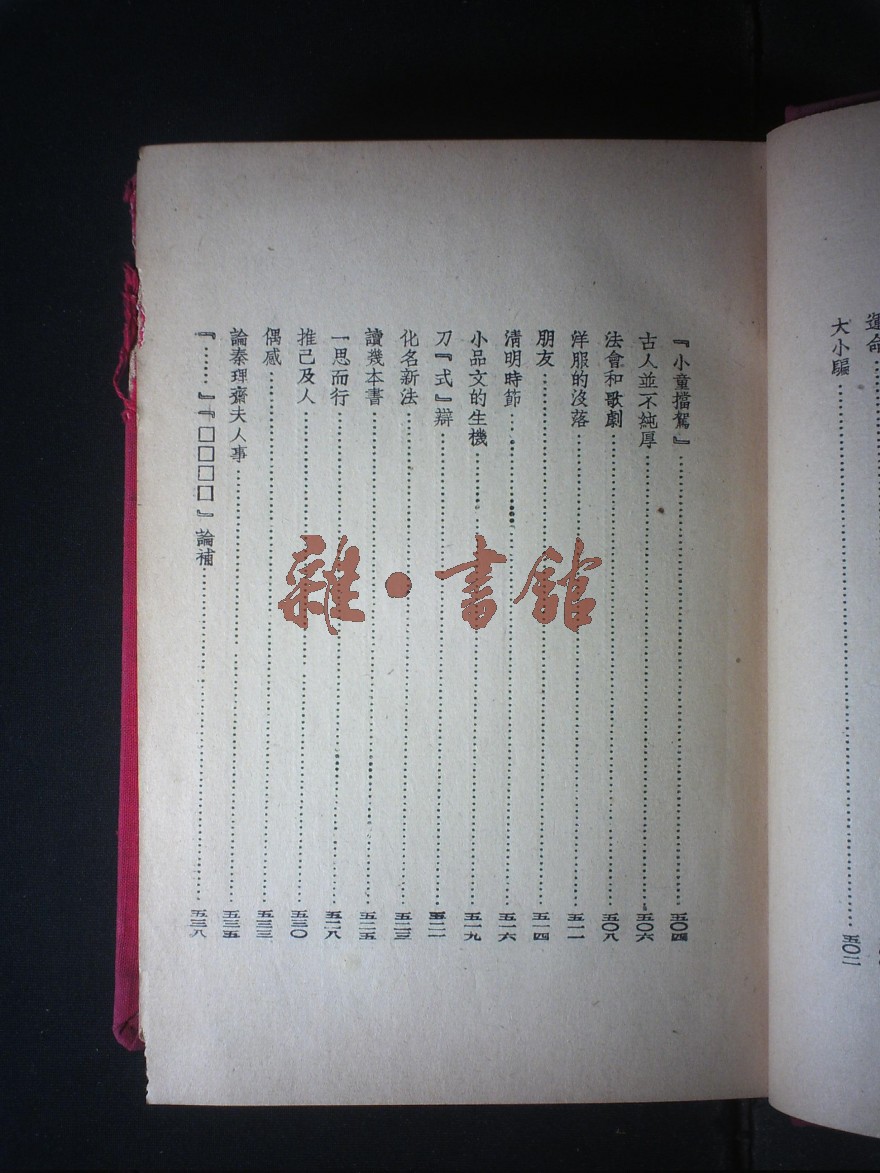 運命
大小騙……五〇二
『小童擋駕』……五〇四
古人並不純厚……五〇六
法會和歌劇……五〇八
洋服的沒落……五一一
朋友……五一四
清明時節……五一六
小品文的生機……五一九
刀『式』辯……五二一
化名新法……五二三
讀幾本書……五二五
一思而行……五二八
推己及人……五三〇
偶感……五三三
論秦理齋夫人事……五三五
『……』『□□□□』論補……五三八
雜·書館